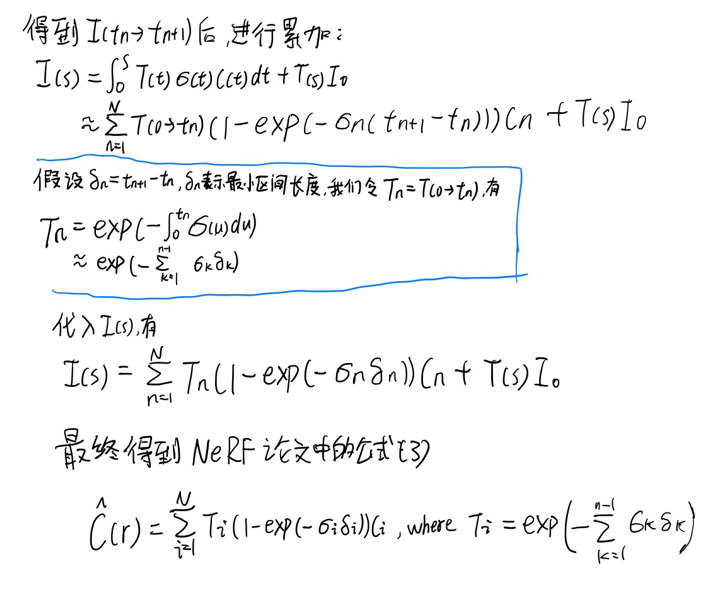 得到 I(tn→tn+1)后,进行累加:
I(s) = ∫₀ˢ T(t)σ(t)C(t)dt + T(s)I₀
≈ ∑ₙ₌₁ᴺ T(0→tn)(1-exp(-σn(tn+1-tn)))Cn + T(s)I₀
假设 δn=tn+1-tn,δn表示最小区间长度,我们令 Tn=T(0→tn),有
Tn = exp(-∫₀ᵗⁿ σ(u)du)
≈ exp(-∑ₖ₌₁ⁿ⁻¹ σkδk)
代入I(s),有
I(s) = ∑ₙ₌₁ᴺ Tn(1-exp(-σnδn))Cn + T(s)I₀
最终得到NeRF论文中的公式(3)
Ĉ(r) = ∑ᵢ₌₁ᴺ Ti(1-exp(-σiδi))Ci, where Ti = exp(-∑ₖ₌₁ⁿ⁻¹ σkδk)